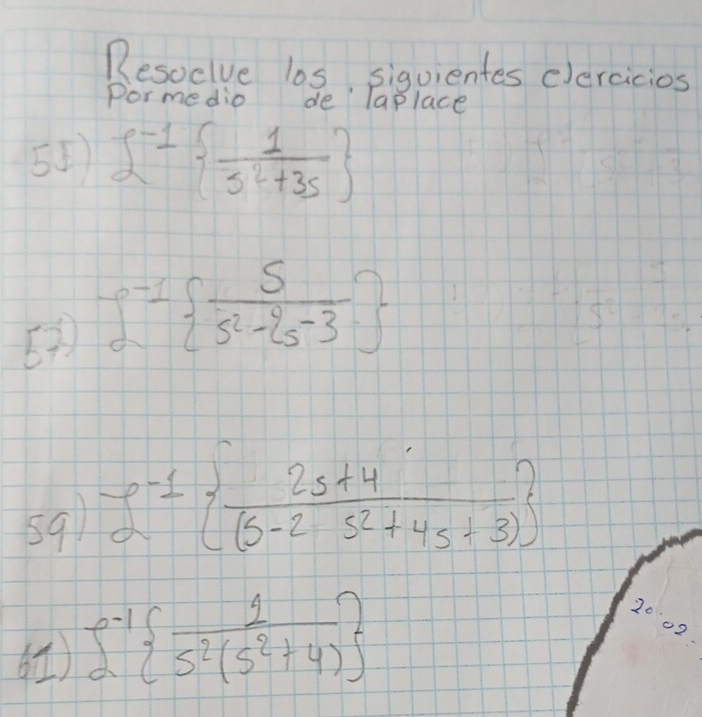 Resuelve los siguientes ejercicios
por medio de laplace
55) ℒ⁻¹ { 1 / s²+3s }
57) ℒ⁻¹ { s / s²-2s-3 }
59) ℒ⁻¹ { 2s+4 / (s-2 s²+4s+3) }
61) ℒ⁻¹ { 1 / s²(s²+4) }
20.02.